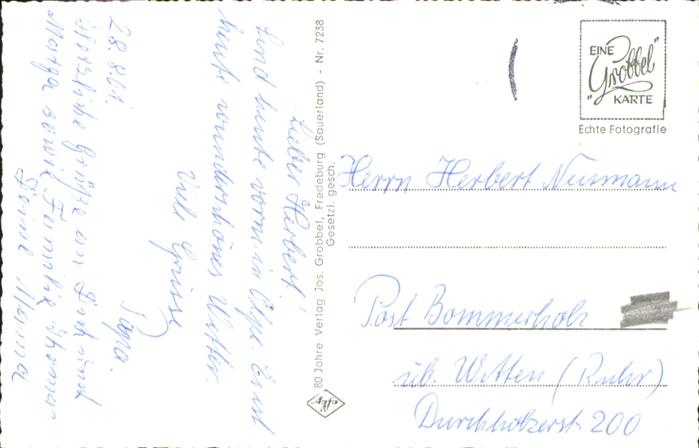 28.8.61.
Lieber Herbert!
Sind heute vorm. in Olpe. Es ist
heute wunderschönes Wetter.
Viele Grüsse
Papa.
Herzliche Grüße an Dich und
sowie Familie
Deine Mama
80 Jahre Verlag Jos. Grobbel, Fredeburg (Sauerland) - Nr. 7238
Gesetzl. gesch.
EINE
"Grobbel"
KARTE
Echte Fotografie
Herrn Herbert Neumann
Post Bommerholz
üb. Witten (Ruhr)
Durchholzerstr. 200